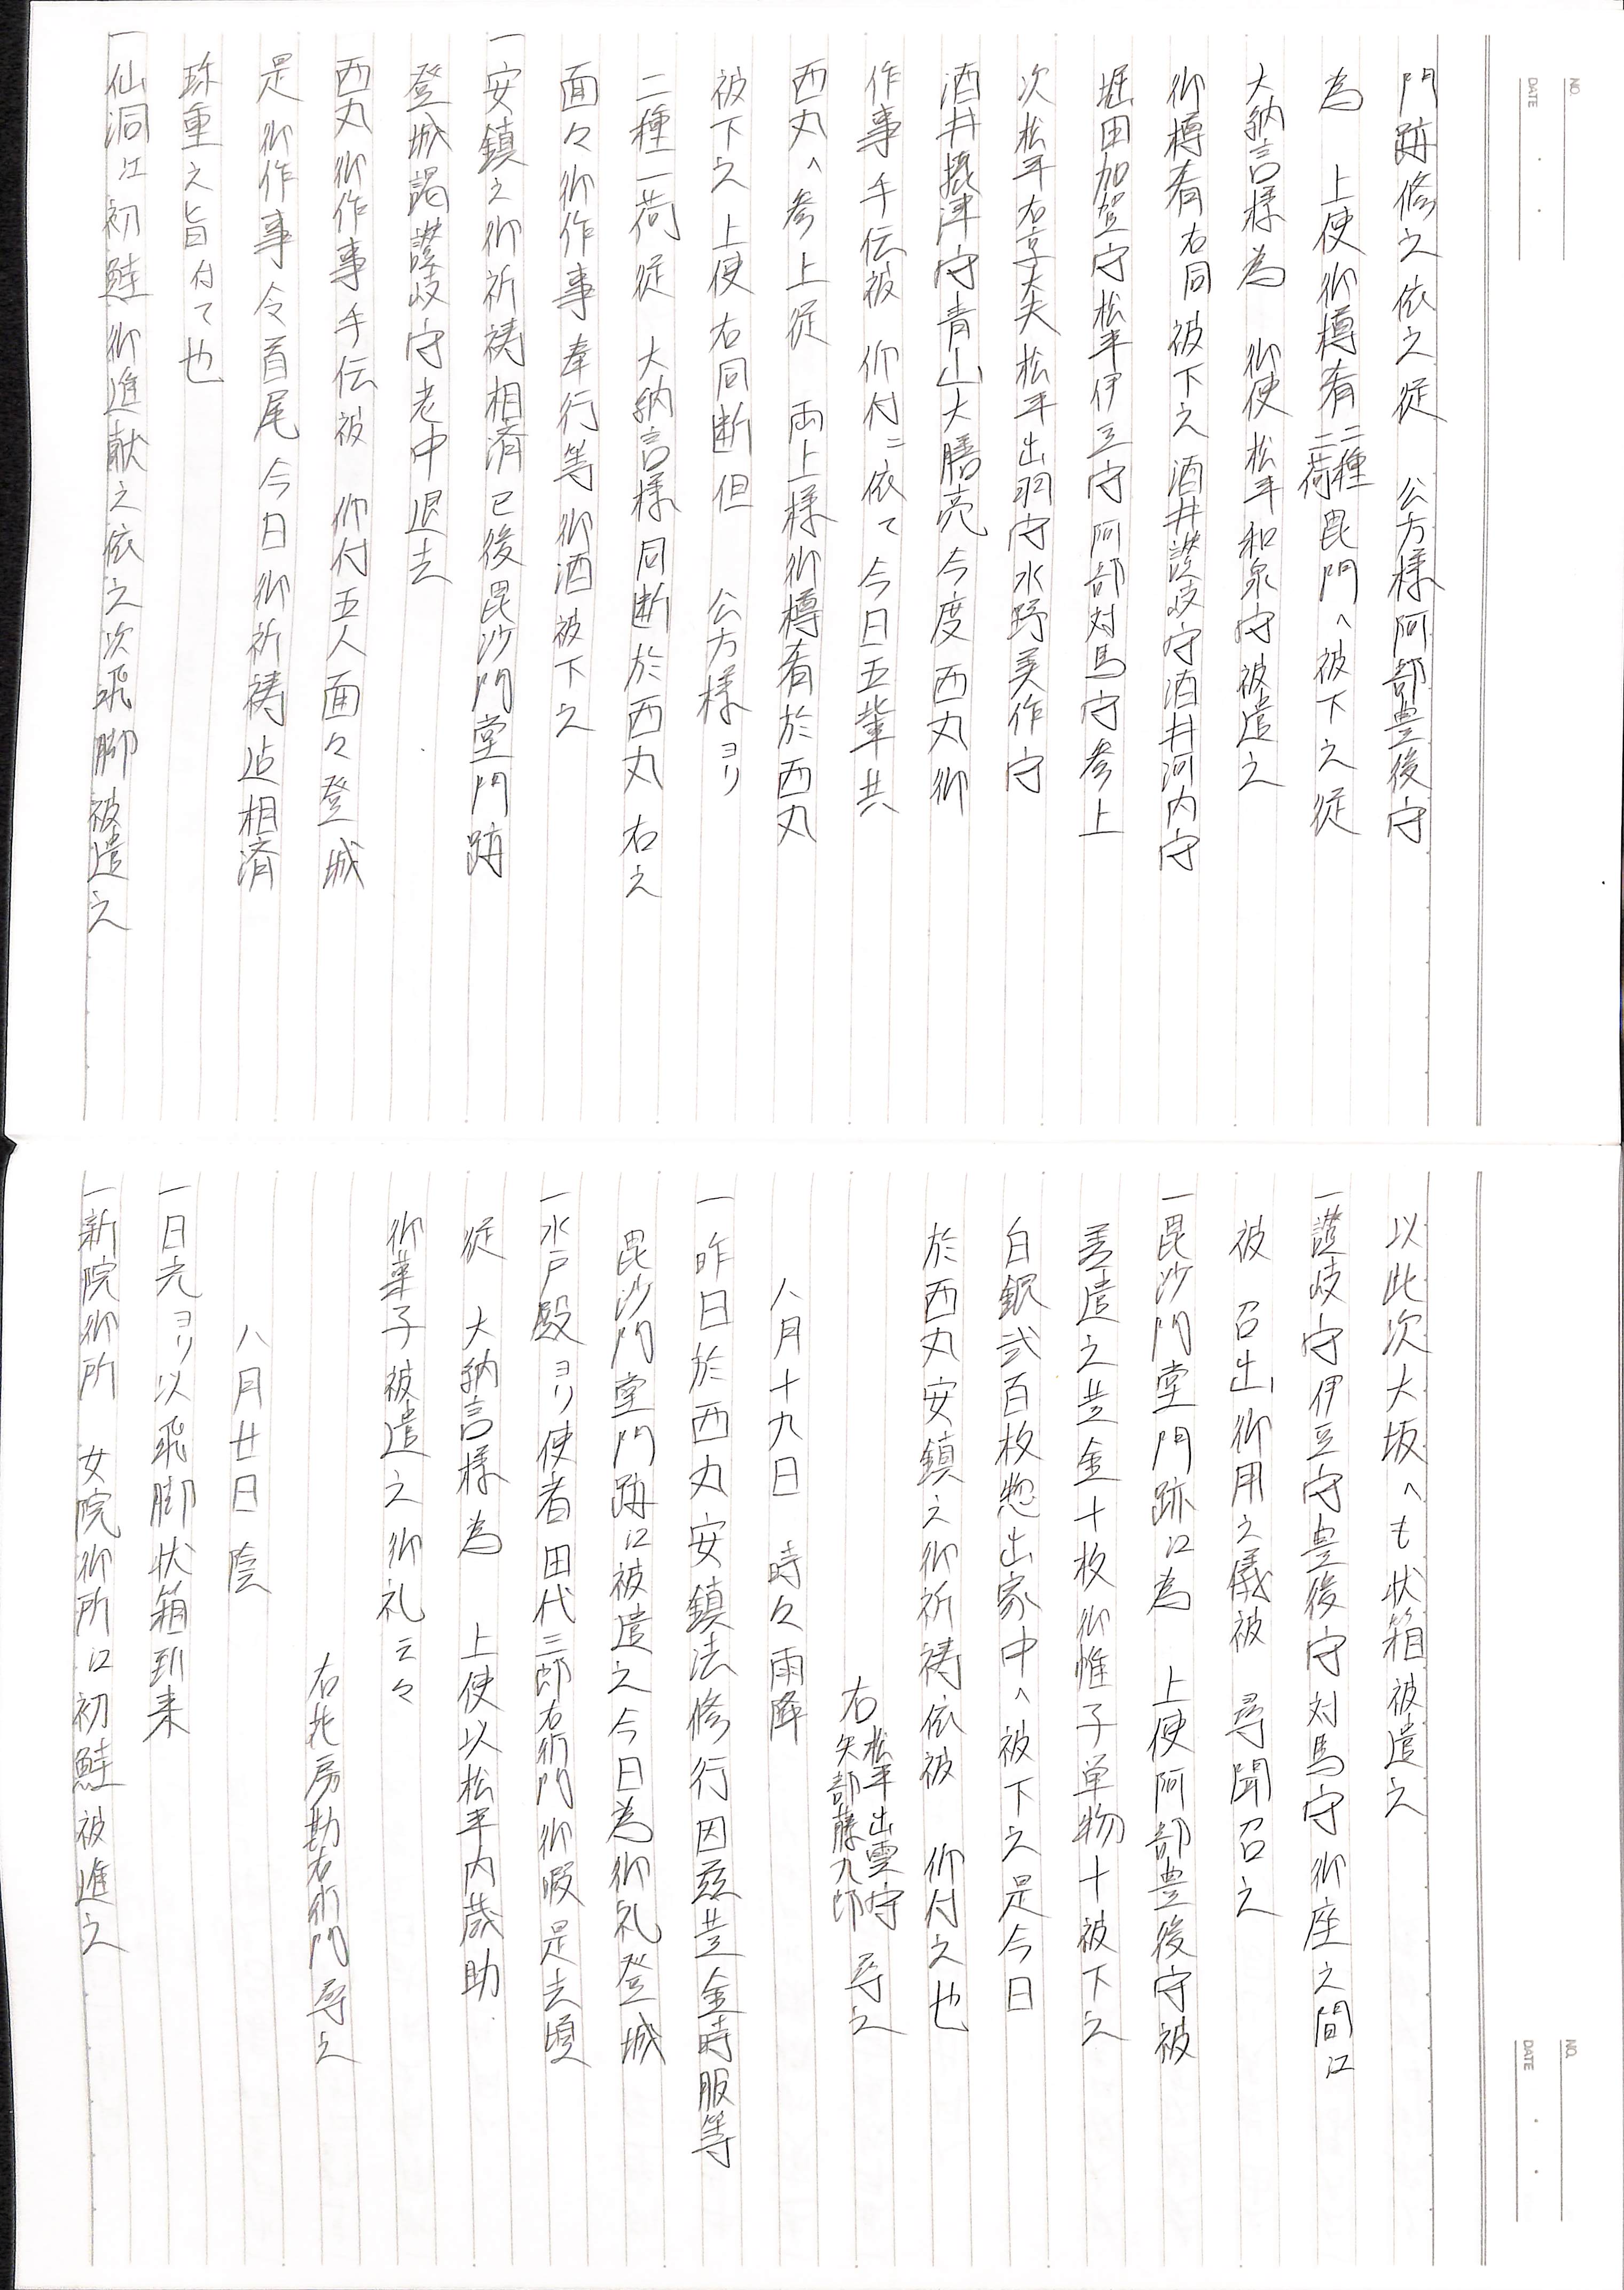 NO.
DATE
門跡修之依之従　公方様阿部豊後守
為　上使御樽肴二種二荷毘門へ被下之従
大納言様為　御使松平和泉守被遣之
御樽肴右同被下之酒井讃岐守酒井河内守
堀田加賀守松平伊豆守阿部対馬守参上
次松平右京大夫松平出羽守水野美作守
酒井摂津守青山大膳亮今度西丸御
作事手伝被　仰付ニ依て今日五輩共
西丸へ参上従　両上様御樽肴於西丸
被下之上使右同断但　公方様ヨリ
二種一荷従　大納言様同断於西丸右之
面々御作事奉行等御酒被下之
一安鎮之御祈祷相済已後毘沙門堂門跡
登城謁讃岐守老中退去
西丸御作事手伝被　仰付五人面々登城
是御作事令首尾今日御祈祷迄相済
珍重之旨付て也
一仙洞江初鮭御進献之依之次飛脚被遣之
NO.
DATE
以此次大坂へも状箱被遣之
一讃岐守伊豆守豊後守対馬守御座之間江
被　召出御用之儀被　尋聞召之
一毘沙門堂門跡江為　上使阿部豊後守被
差遣之其金十枚御帷子単物十被下之
白銀弐百枚惣出家中へ被下之是今日
於西丸安鎮之御祈祷依被　仰付之也
右松平出雲守矢部藤九郎　尋之
八月十九日　時々雨降
一昨日於西丸安鎮法修行因茲其金時服等
毘沙門堂門跡江被遣之今日為御礼登城
一水戸殿ヨリ使者田代三郎右衛門御暇是去頃
従　大納言様為　上使以松平内蔵助
御菓子被遣之御礼云々
右花房勘右衛門尋之
八月廿日　陰
一日光ヨリ以飛脚状箱到来
一新院御所　女院御所江初鮭被進之